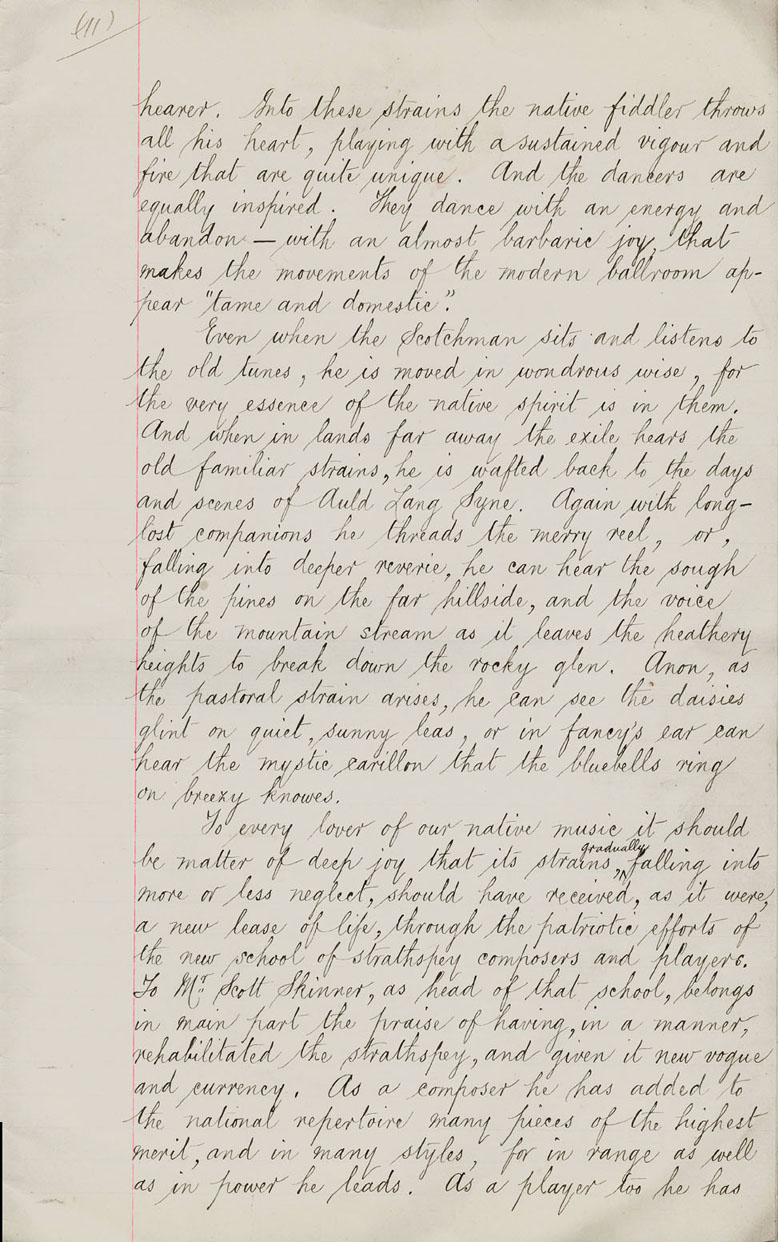 (11)
hearer. Into these strains the native fiddler throws
all his heart, playing with a sustained vigour and
fire that are quite unique. And the dancers are
equally inspired. They dance with an energy and
abandon — with an almost barbaric joy, that
makes the movements of the modern ballroom ap-
pear "tame and domestic".
Even when the Scotchman sits and listens to
the old tunes, he is moved in wondrous wise, for
the very essence of the native spirit is in them.
And when in lands far away the exile hears the
old familiar strains, he is wafted back to the days
and scenes of Auld Lang Syne. Again with long-
lost companions he threads the merry reel, or,
falling into deeper reverie, he can hear the sough
of the pines on the far hillside, and the voice
of the mountain stream as it leaves the heathery
heights to break down the rocky glen. Anon, as
the pastoral strain arises, he can see the daisies
glint on quiet, sunny leas, or in fancy's ear can
hear the mystic carillon that the bluebells ring
on breezy knowes.
To every lover of our native music it should
be matter of deep joy that its strains, gradually falling into
more or less neglect, should have received, as it were,
a new lease of life, through the patriotic efforts of
the new school of strathspey composers and players.
To Mr. Scott Skinner, as head of that school, belongs
in main part the praise of having, in a manner,
rehabilitated the strathspey, and given it new vogue
and currency. As a composer he has added to
the national repertoire many pieces of the highest
merit, and in many styles, for in range as well
as in power he leads. As a player too he has